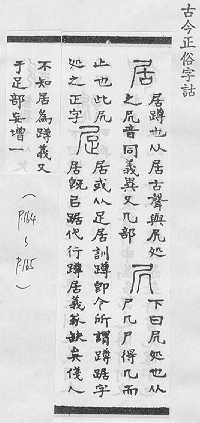 古今正俗字詁
居
居蹲也从居古聲與凥処
之凥音同義異又几部
凥
下曰凥処也从
尸几尸得几而
止也此凥
処之正字
居或从足居訓蹲即今所謂蹲踞字
居旣㠯踞代行蹲居義㒸缺矣後人
不知居為蹲義又
于足部矣增一
(P.164~P.165)